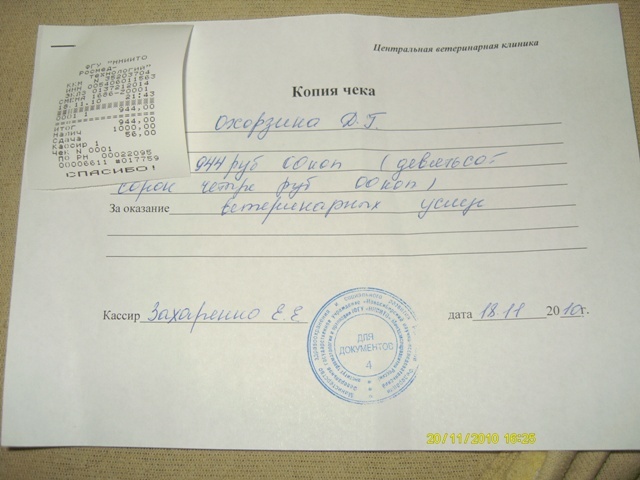 Центральная ветеринарная клиника
Копия чека
ФГУ "ННИИТО
Росмед-
технологий"
18.11.10
21:43
0001
944,00
ИТОГ 944,00
Налич 1000,00
Сдача 56,00
Кассир 1
Чек N 0001
По РН 00022095
00006611 #017759
СПАСИБО!
Охорзина Д.Г.
944 руб 00 коп (девятьсот
сорок четыре руб 00 коп)
За оказание ветеринарных услуг
Кассир Захаренко Е.Е. дата 18.11 2010г.
ДЛЯ
ДОКУМЕНТОВ
4
20/11/2010 16:35